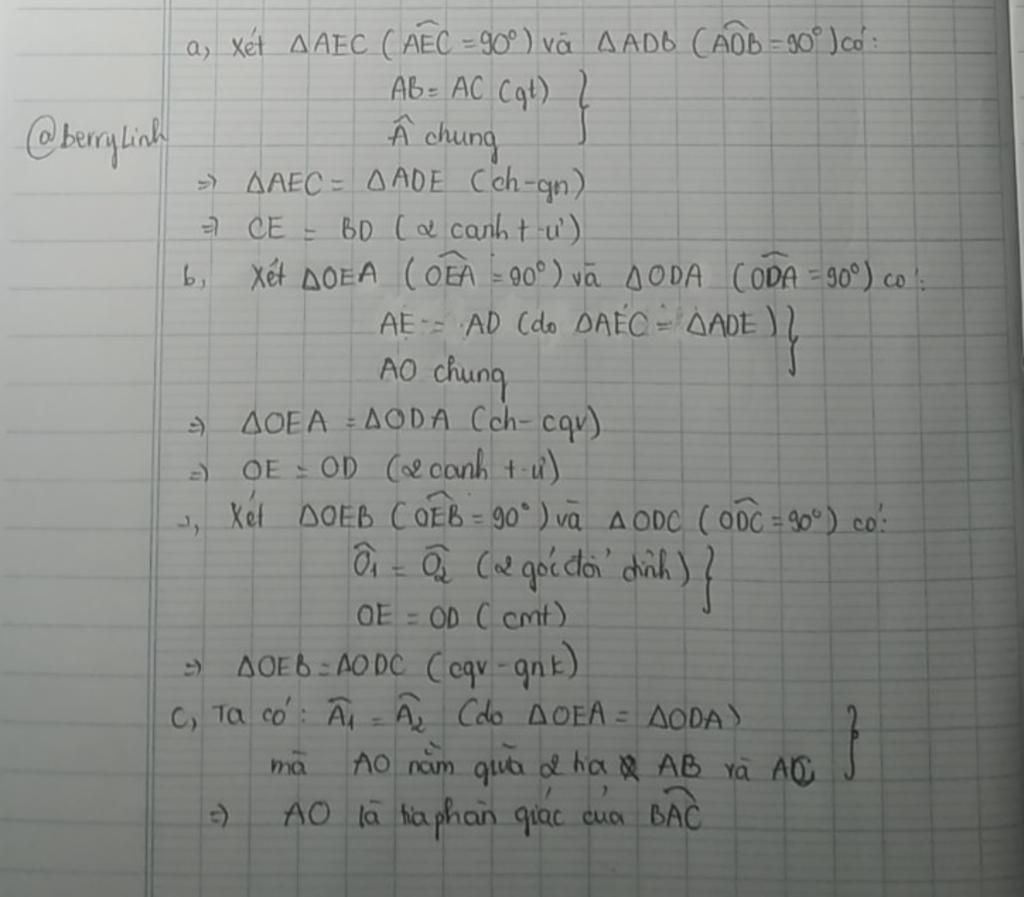 a, Xét ΔAEC (\widehat{AEC} = 90°) và ΔADB (\widehat{ADB} = 90°) có:
AB = AC (gt) }
@berryLinh
Â chung
=> ΔAEC = ΔADE (ch-gn)
=> CE = BD (2 cạnh t.ư)
b, Xét ΔOEA (\widehat{OEA} = 90°) và ΔODA (\widehat{ODA} = 90°) có:
AE = AD (do ΔAEC = ΔADE) }
AO chung
=> ΔOEA = ΔODA (ch-cgv)
=> OE = OD (2 cạnh t.ư)
->, Xét ΔOEB (\widehat{OEB} = 90°) và ΔODC (\widehat{ODC} = 90°) có:
\widehat{O₁} = \widehat{O₂} (2 góc đối đỉnh) }
OE = OD (cmt)
=> ΔOEB = ΔODC (cgv-gnk)
c, Ta có: \widehat{A₁} = \widehat{A₂} (do ΔOEA = ΔODA) }
mà AO nằm giữa 2 tia AB và AC
=> AO là tia phân giác của \widehat{BAC}